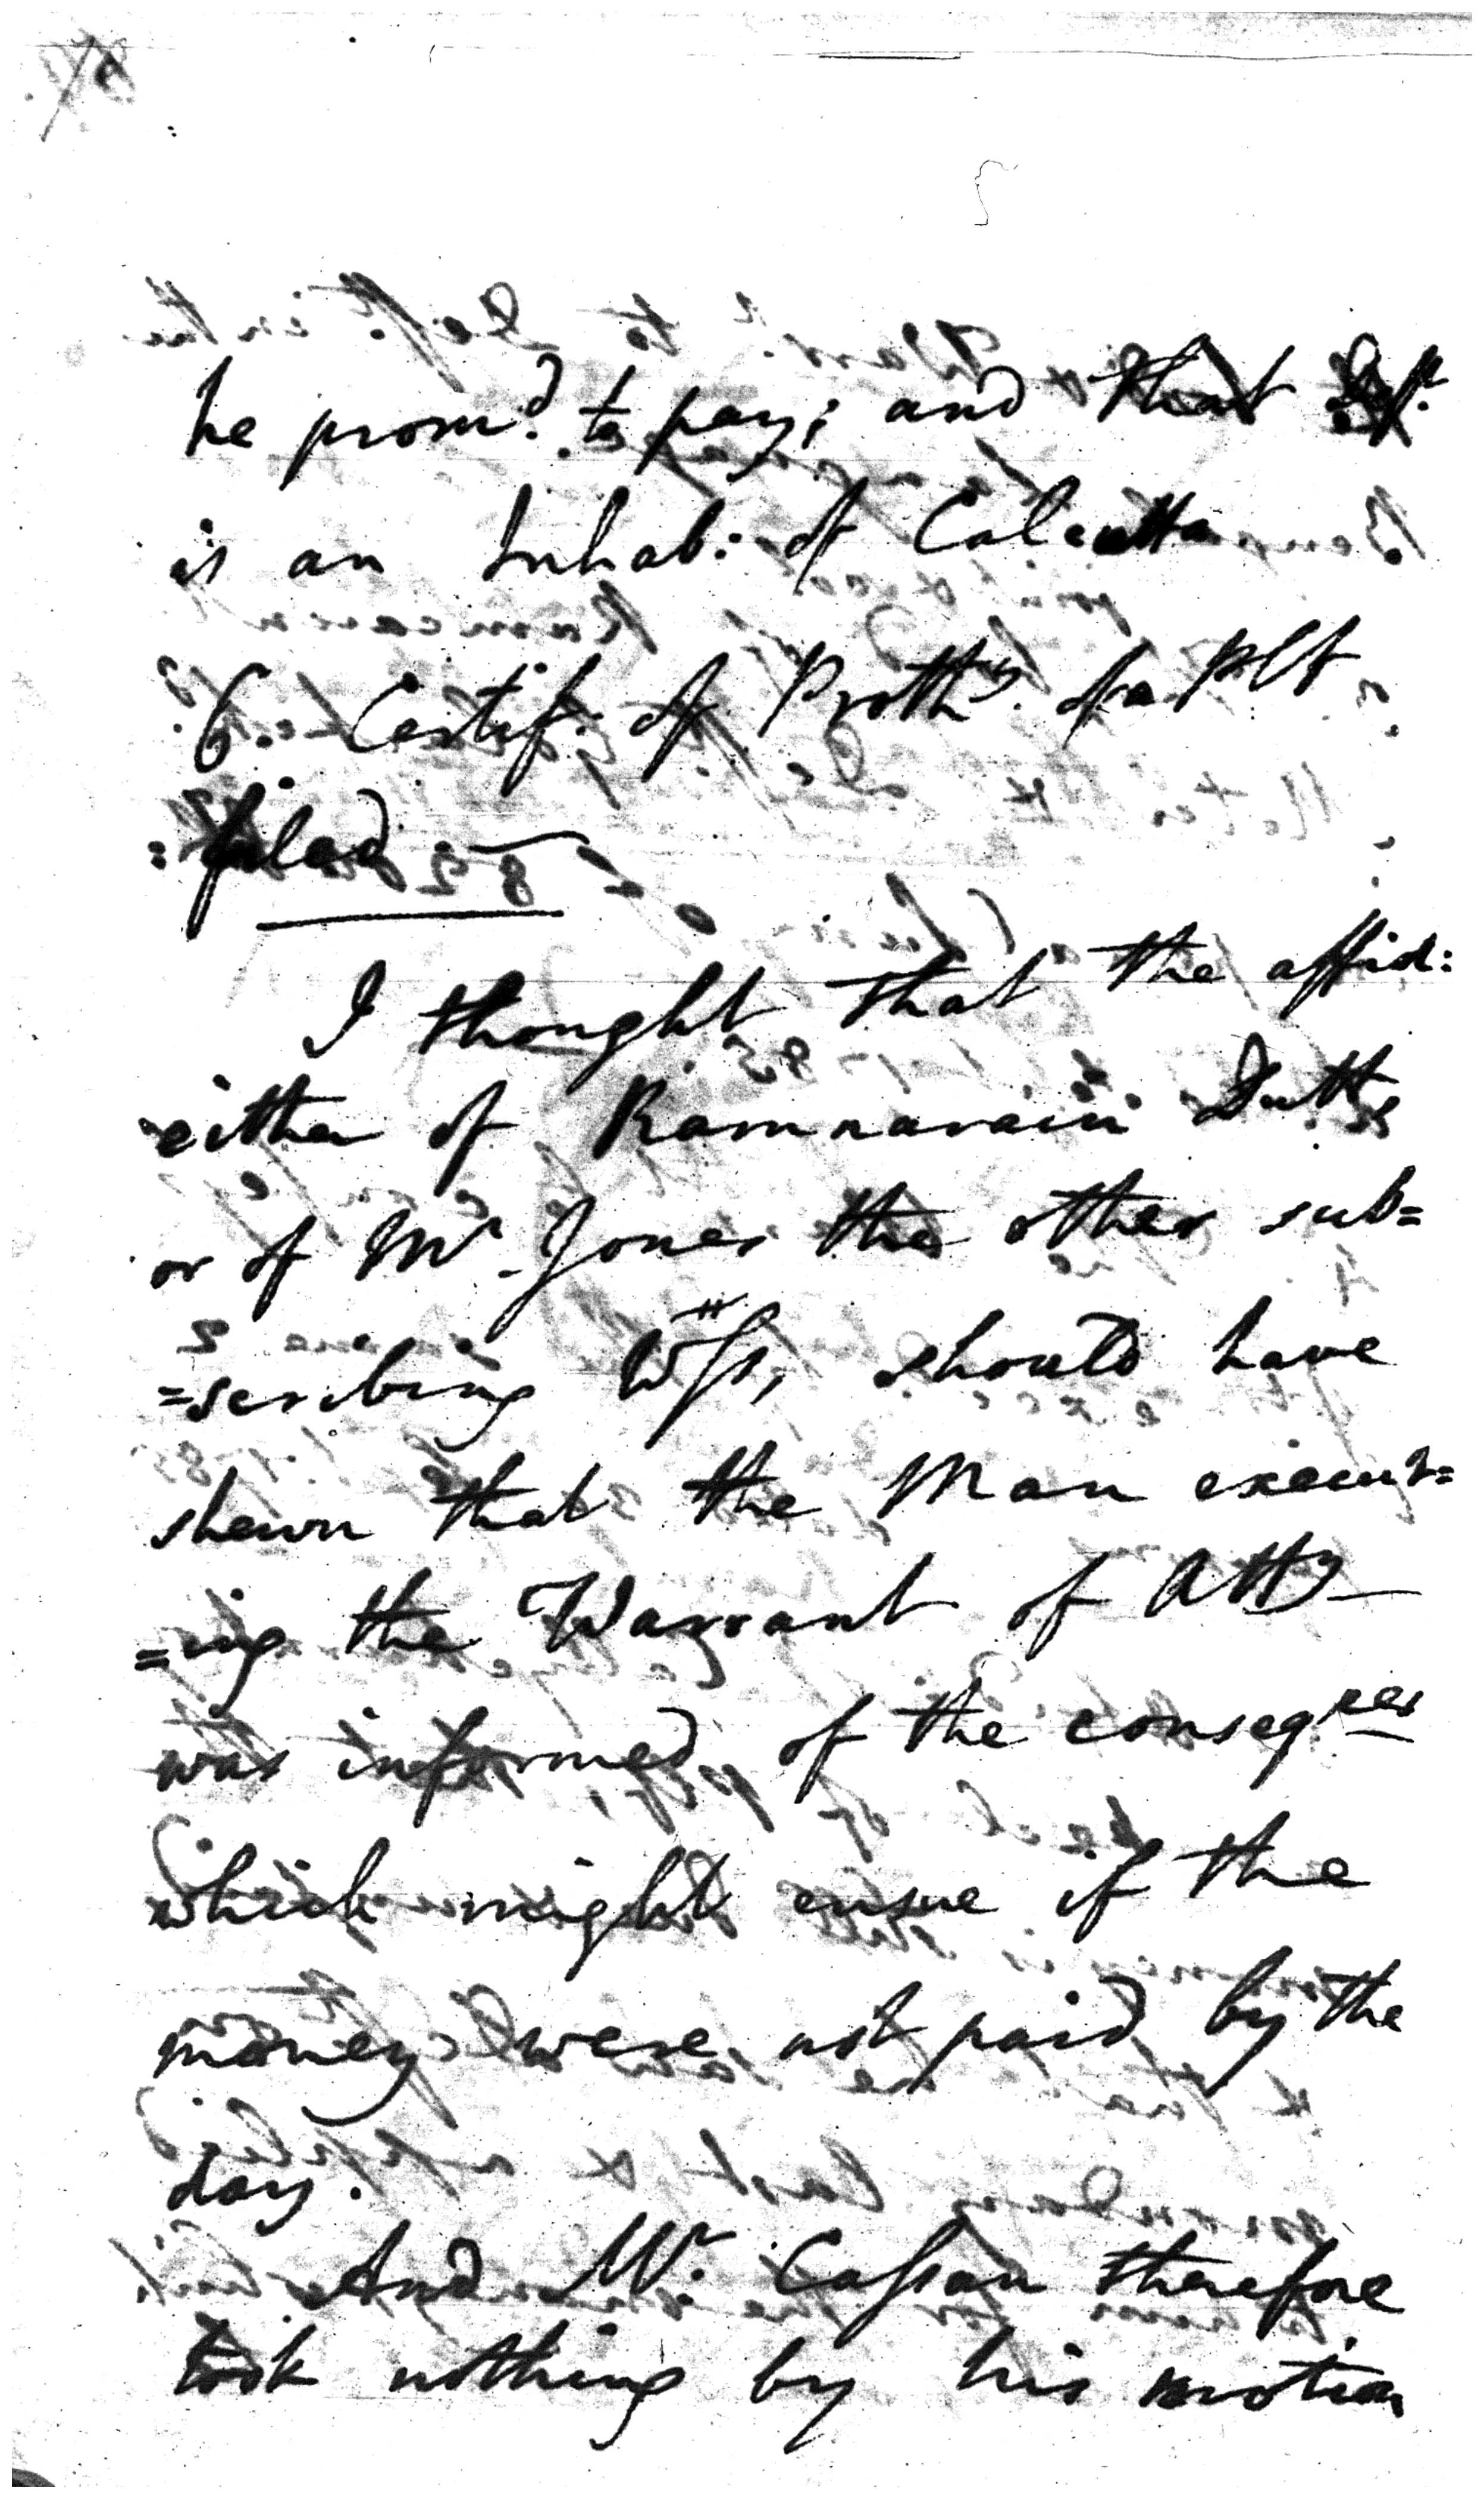 he prom.d to pay; and that Deft.
is an Inhab: of Calcutta
6 Certif: of Prothy. of a Plt
filed —
I thought that the affid:
either of Ramnarain Dutt
or of Mr. Jones the other sub=
=scribing Wss, should have
shewn that the Man execut=
=ing the Warrant of Atty
was informed of the conseqces
which might ensue if the
money were not paid by the
day.
And Mr. Cassan therefore
took nothing by his motion